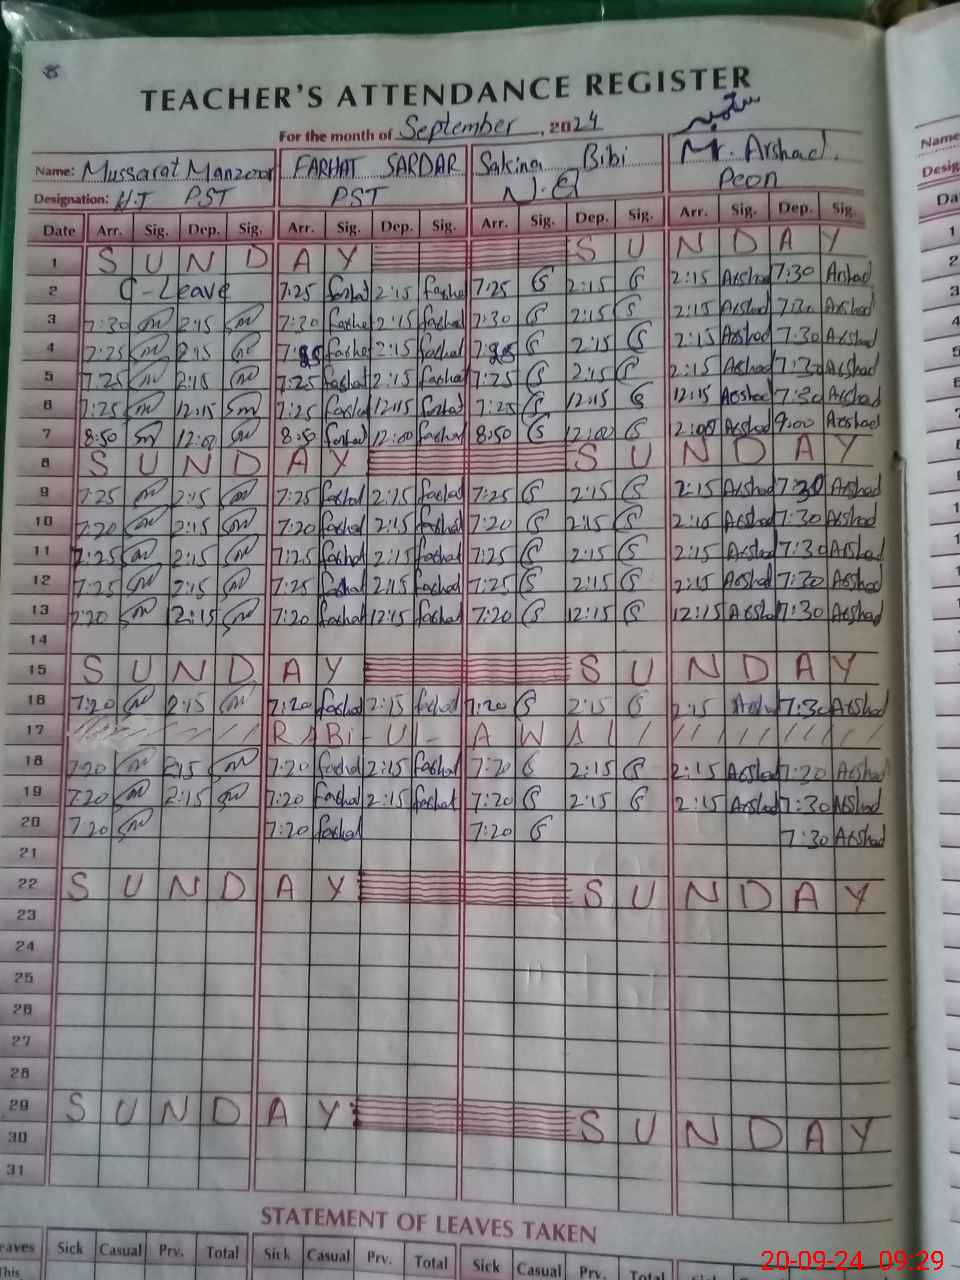 8
TEACHER'S ATTENDANCE REGISTER
For the month of September, 2024
Name: Mussarat Manzoor FARHAT SARDAR Sakina Bibi Mr. Arshad.
Designation: H.T PST PST N.Q Peon
Date Arr. Sig. Dep. Sig. Arr. Sig. Dep. Sig. Arr. Sig. Dep. Sig. Arr. Sig. Dep. Sig.
1 S U N D A Y S U N D A Y
2 C-Leave 7:25 farhat 2:15 farhat 7:25 S 2:15 S 2:15 Arshad 7:30 Arshad
3 7:30 2:15 7:30 farhat 2:15 farhat 7:30 S 2:15 S 2:15 Arshad 7:30 Arshad
4 7:25 2:15 7:25 farhat 2:15 farhat 7:25 S 2:15 S 2:15 Arshad 7:30 Arshad
5 7:25 2:15 7:25 farhat 2:15 farhat 7:25 S 2:15 S 2:15 Arshad 7:30 Arshad
6 7:25 12:15 7:25 farhat 12:15 farhat 7:25 S 12:15 S 12:15 Arshad 7:30 Arshad
7 8:50 12:00 8:50 farhat 12:00 farhat 8:50 S 12:00 S 2:00 Arshad 9:00 Arshad
8 S U N D A Y S U N D A Y
9 7:25 2:15 7:25 farhat 2:15 farhat 7:25 S 2:15 S 2:15 Arshad 7:30 Arshad
10 7:20 2:15 7:20 farhat 2:15 farhat 7:20 S 2:15 S 2:15 Arshad 7:30 Arshad
11 7:25 2:15 7:25 farhat 2:15 farhat 7:25 S 2:15 S 2:15 Arshad 7:30 Arshad
12 7:25 2:15 7:25 farhat 2:15 farhat 7:25 S 2:15 S 2:15 Arshad 7:30 Arshad
13 7:20 2:15 7:20 farhat 12:15 farhat 7:20 S 12:15 S 12:15 Arshad 7:30 Arshad
14
15 S U N D A Y S U N D A Y
16 7:20 2:15 7:20 farhat 2:15 farhat 7:20 S 2:15 S 2:15 Arshad 7:30 Arshad
17 RABI-UL-AWAL
18 7:20 2:15 7:20 farhat 2:15 farhat 7:20 S 2:15 S 2:15 Arshad 7:30 Arshad
19 7:20 2:15 7:20 farhat 2:15 farhat 7:20 S 2:15 S 2:15 Arshad 7:30 Arshad
20 7:20 7:20 farhat 7:20 S 7:30 Arshad
21
22 S U N D A Y S U N D A Y
23
24
25
26
27
28
29 S U N D A Y S U N D A Y
30
31
STATEMENT OF LEAVES TAKEN
eaves Sick Casual Prv. Total Sick Casual Prv. Total Sick Casual Prv. Total Sick
This
20-09-24 09:29